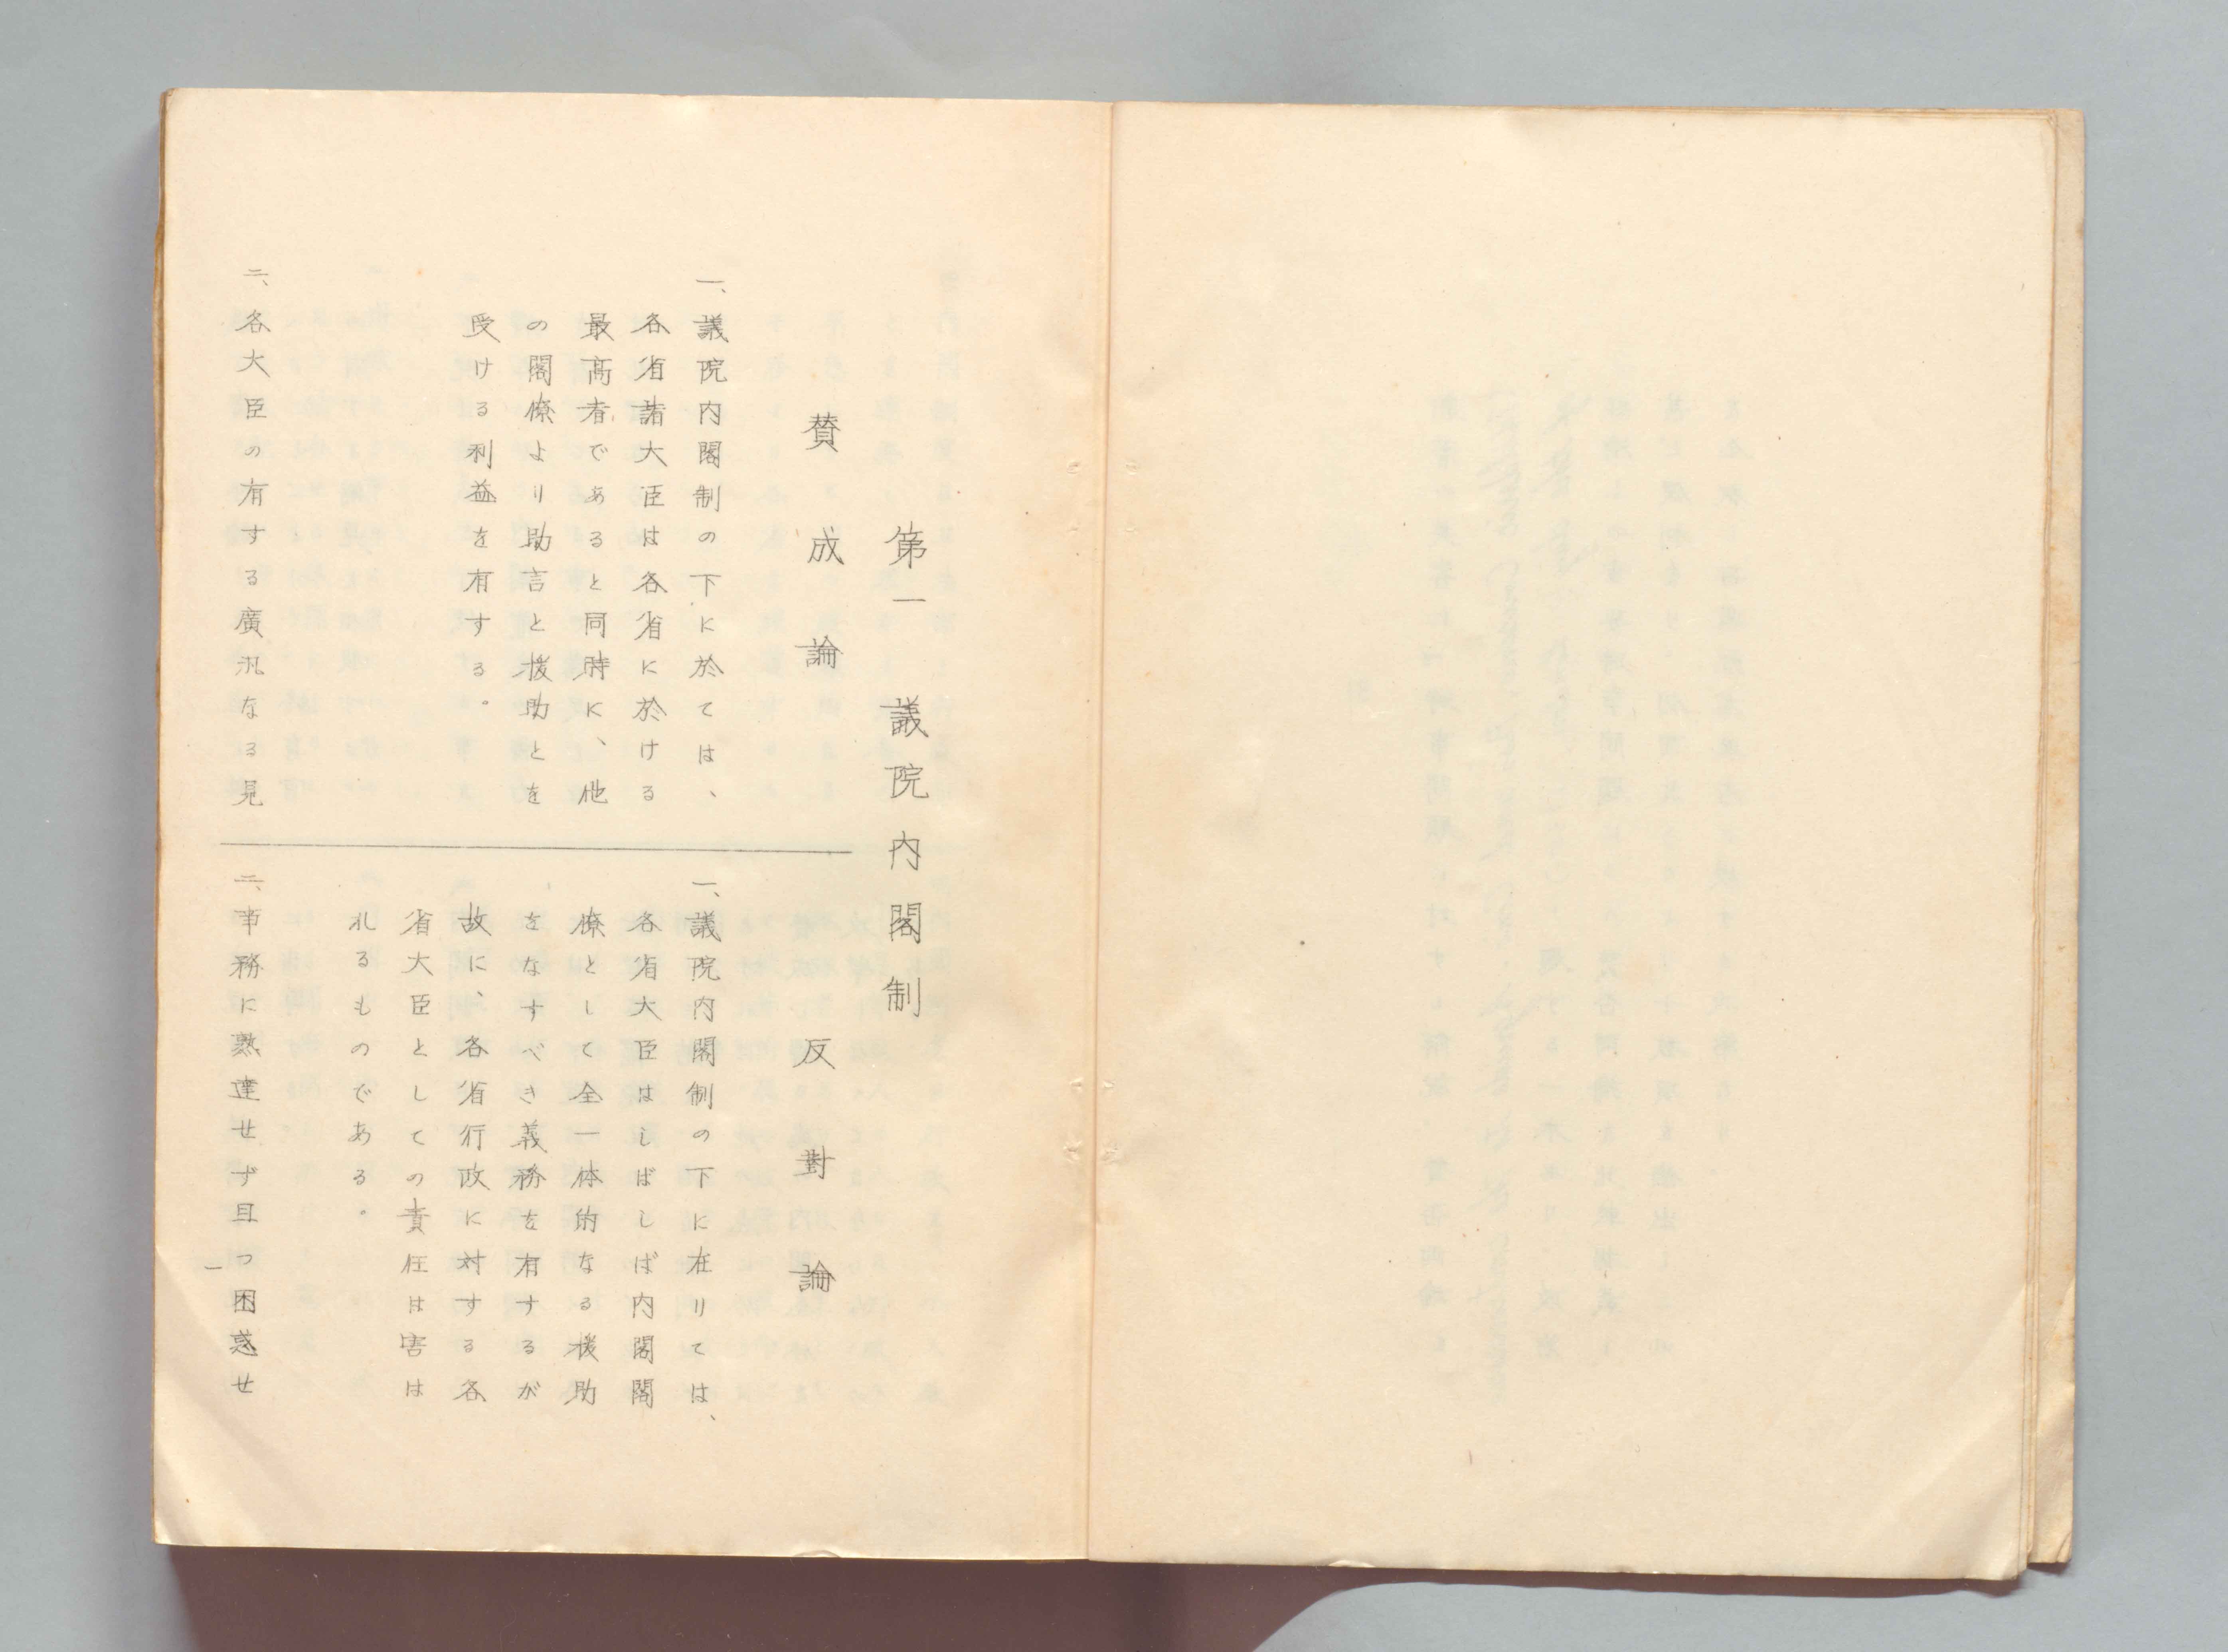 第一 議院内閣制
賛成論
一、議院内閣制の下に於ては、
各省諸大臣は各省に於ける
最高者であると同時に、他
の閣僚より助言と援助とを
受ける利益を有する。
二、各大臣の有する廣汎なる見
反對論
一、議院内閣制の下に在りては、
各省大臣はしばしば内閣閣
僚として全一体的なる援助
をなすべき義務を有するが
故に、各省行政に対する各
省大臣としての責任は害は
れるものである。
二、事務に熟達せず且つ困惑せ
一